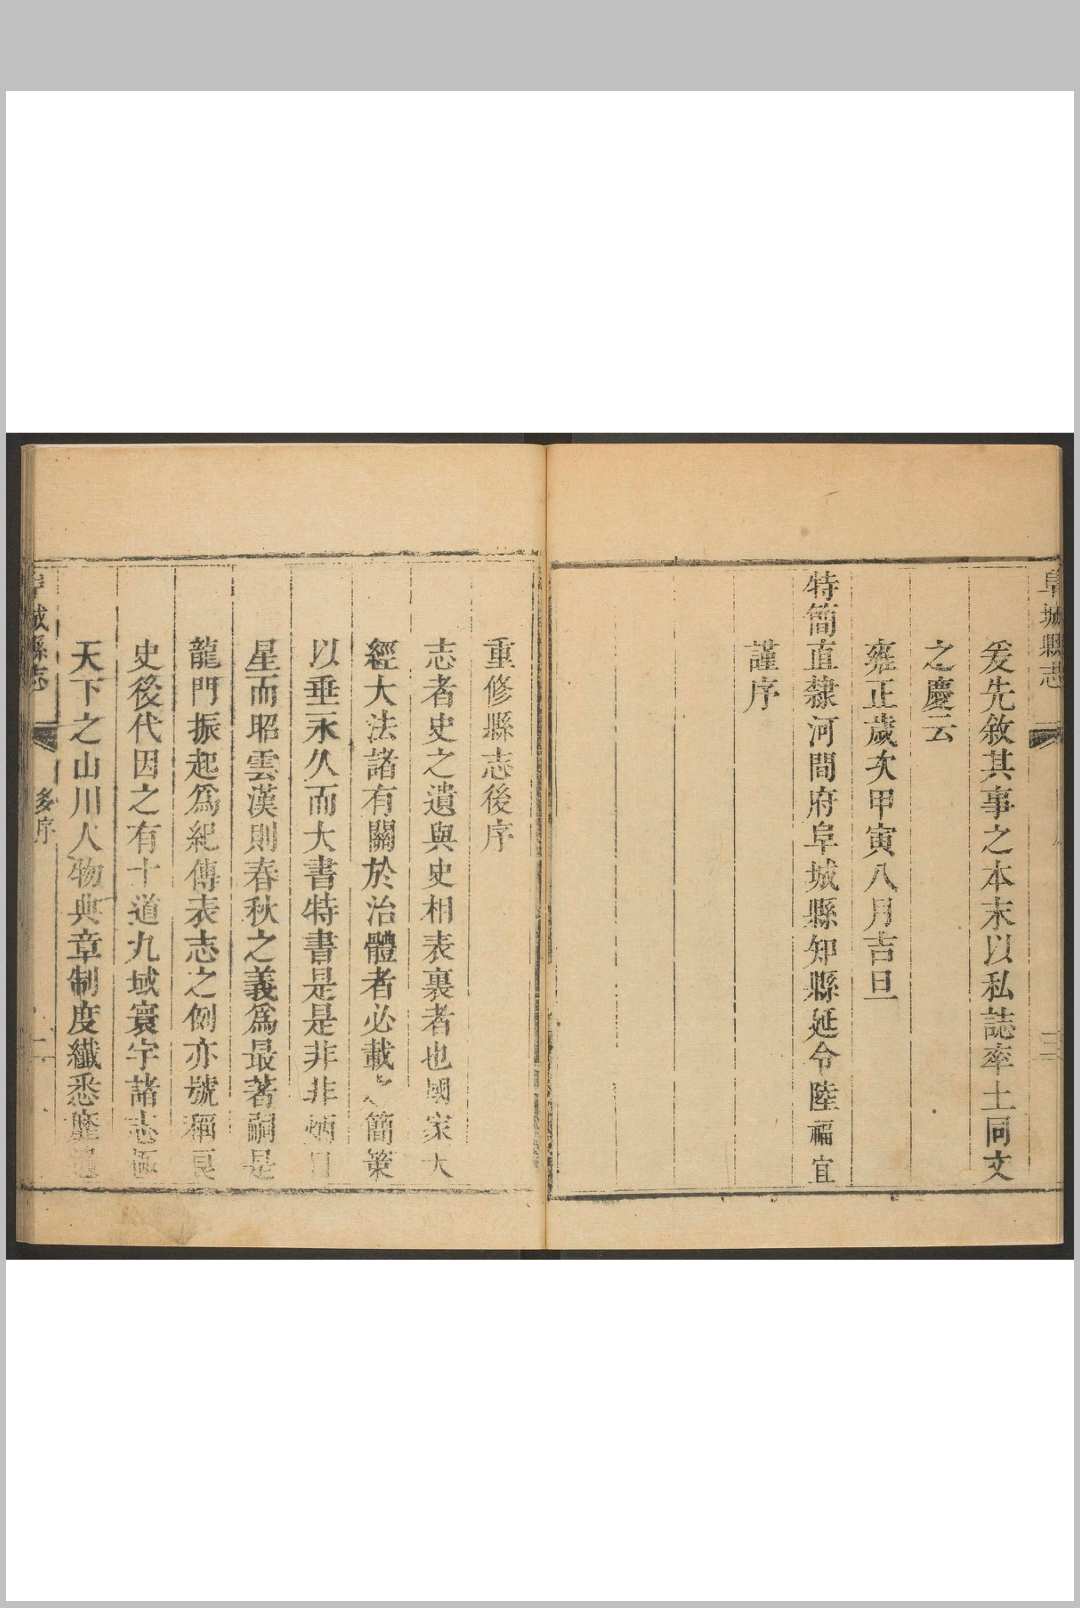 阜城縣志
爰先敘其事之本末以私誌率土同文
之慶云
雍正歲次甲寅八月吉旦
特簡直隸河間府阜城縣知縣延令陸福宜
謹序
重修縣志後序
志者史之遺與史相表裏者也國家大
經大法諸有關於治體者必載之簡策
以垂永久而大書特書是是非非炳日
星而昭雲漢則春秋之義爲最著嗣是
龍門振起爲紀傳表志之例亦號稱良
史後代因之有十道九域寰宇諸志極
天下之山川人物典章制度纖悉靡遺
阜城縣志
序
二